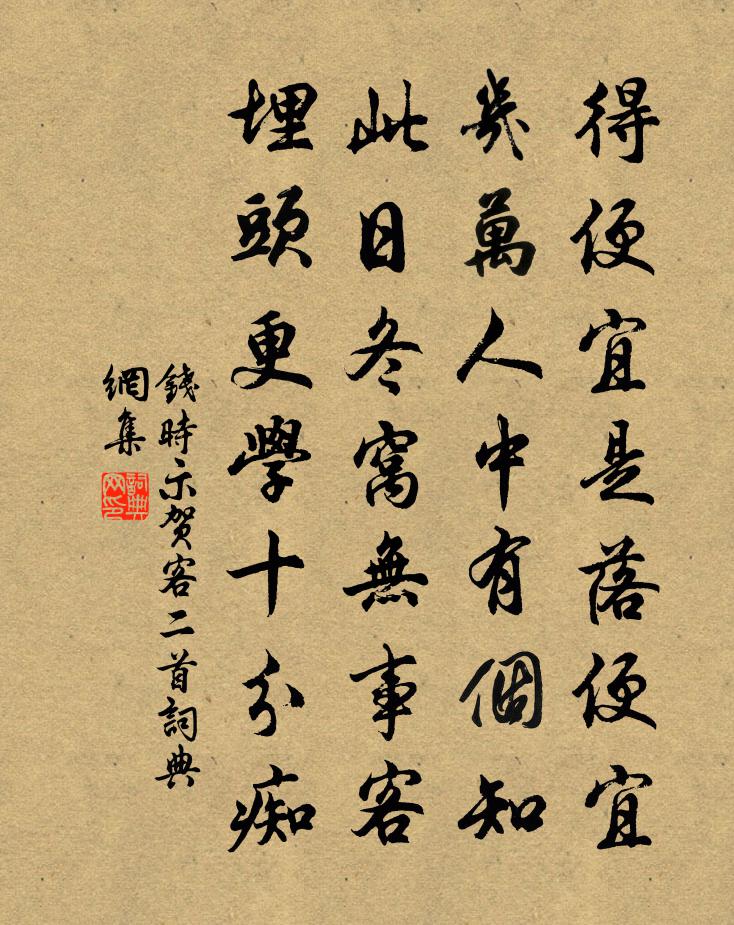 得便宜是落便宜
幾萬人中有個知
此日冬窩無事客
埋頭更學十分痴
錢時示賀客二首詞典
網集
詞典
网印